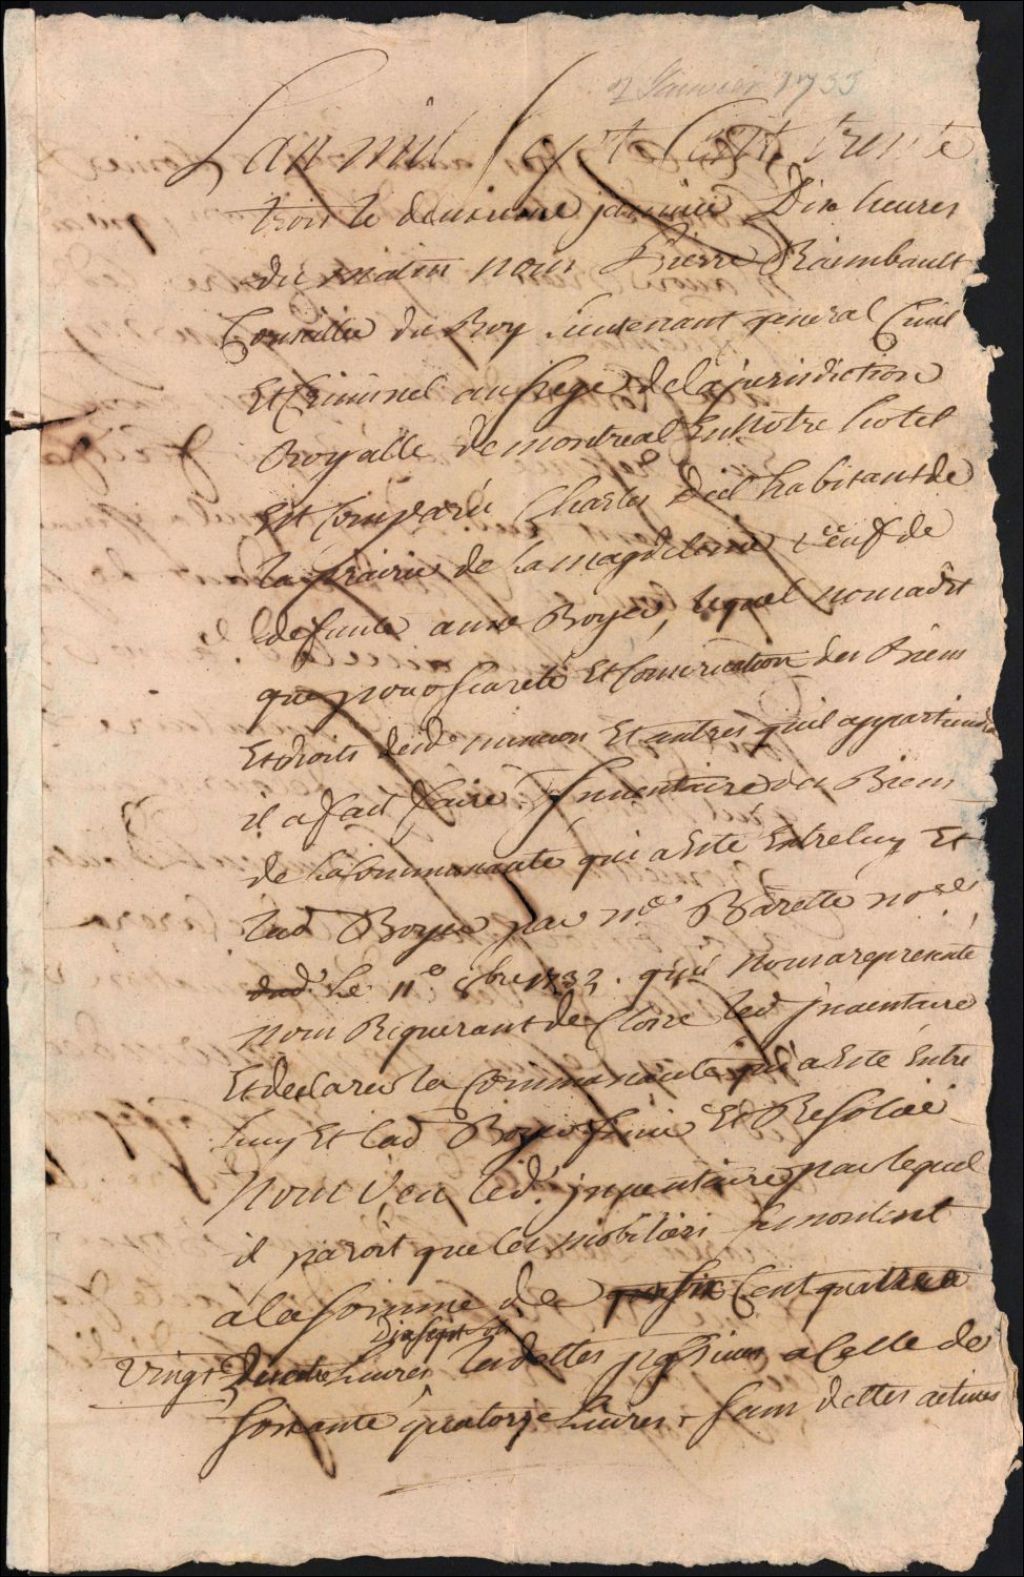 2 Janvier 1733
Lan mil sept Cent trente
trois le deuxieme janvier Dix heures
du matin nous Pierre Raimbault
Conseiller du Roy Lieutenant general Civil
Et Criminel au siege de la jurisdiction
Royalle de montreal En Notre hotel
Est Comparu Charles Deil habitant de
la prairie de la magdelaine veuf de
defunte anne Boyer, lequel nous a dit
que pour sureté Et Conservation des Biens
Et droits desd. mineurs Et autres quil appartiendra
il a fait faire Inventaire des Biens
de la Communauté qui a Esté Entre luy Et
lad Boyer par Me Barette nore
dud. Le 11e 8bre 1732. quil Nous a representé
nous Requerant de Clore led jnventaire
Et declarer la Communauté qui a Esté Entre
luy Et lad Boyer finie Et Resolüe
Nous Veu led. jnventaire par lequel
il paroit que les mobiliers se montent
a la somme de six Cent quatre
Dix sept
Vingt Livres, les dettes passives a Celle de
soixante quatorze Livres sans dettes actives